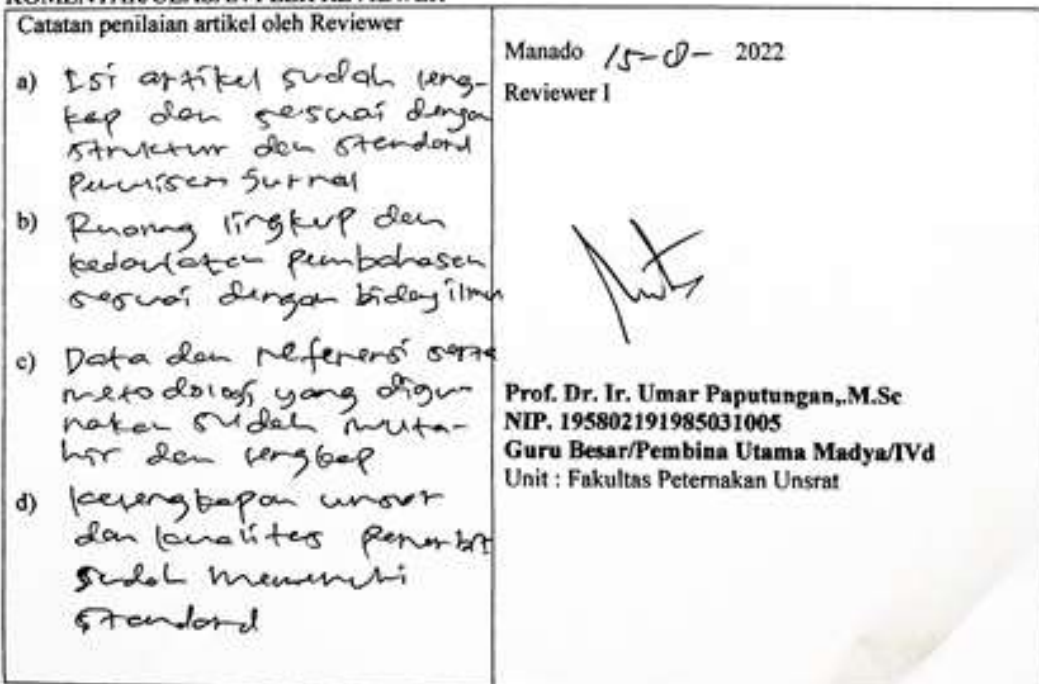 KOMENTAR/ULASAN PEER REVIEWER
Catatan penilaian artikel oleh Reviewer
a) Isi artikel sudah leng-
kap dan sesuai dengan
struktur dan standard
Penulisan Jurnal
b) Ruang lingkup dan
kedalaman pembahasan
sesuai dengan bidang ilmu
c) Data dan referensi serta
metodologi yang digu-
nakan sudah muta-
hir dan lengkap
d) kelengkapan unsur
dan kualitas Penerbit
sudah memenuhi
standard
Manado 15- 2022
Reviewer I
Prof. Dr. Ir. Umar Paputungan,.M.Sc
NIP. 195802191985031005
Guru Besar/Pembina Utama Madya/IVd
Unit : Fakultas Peternakan Unsrat